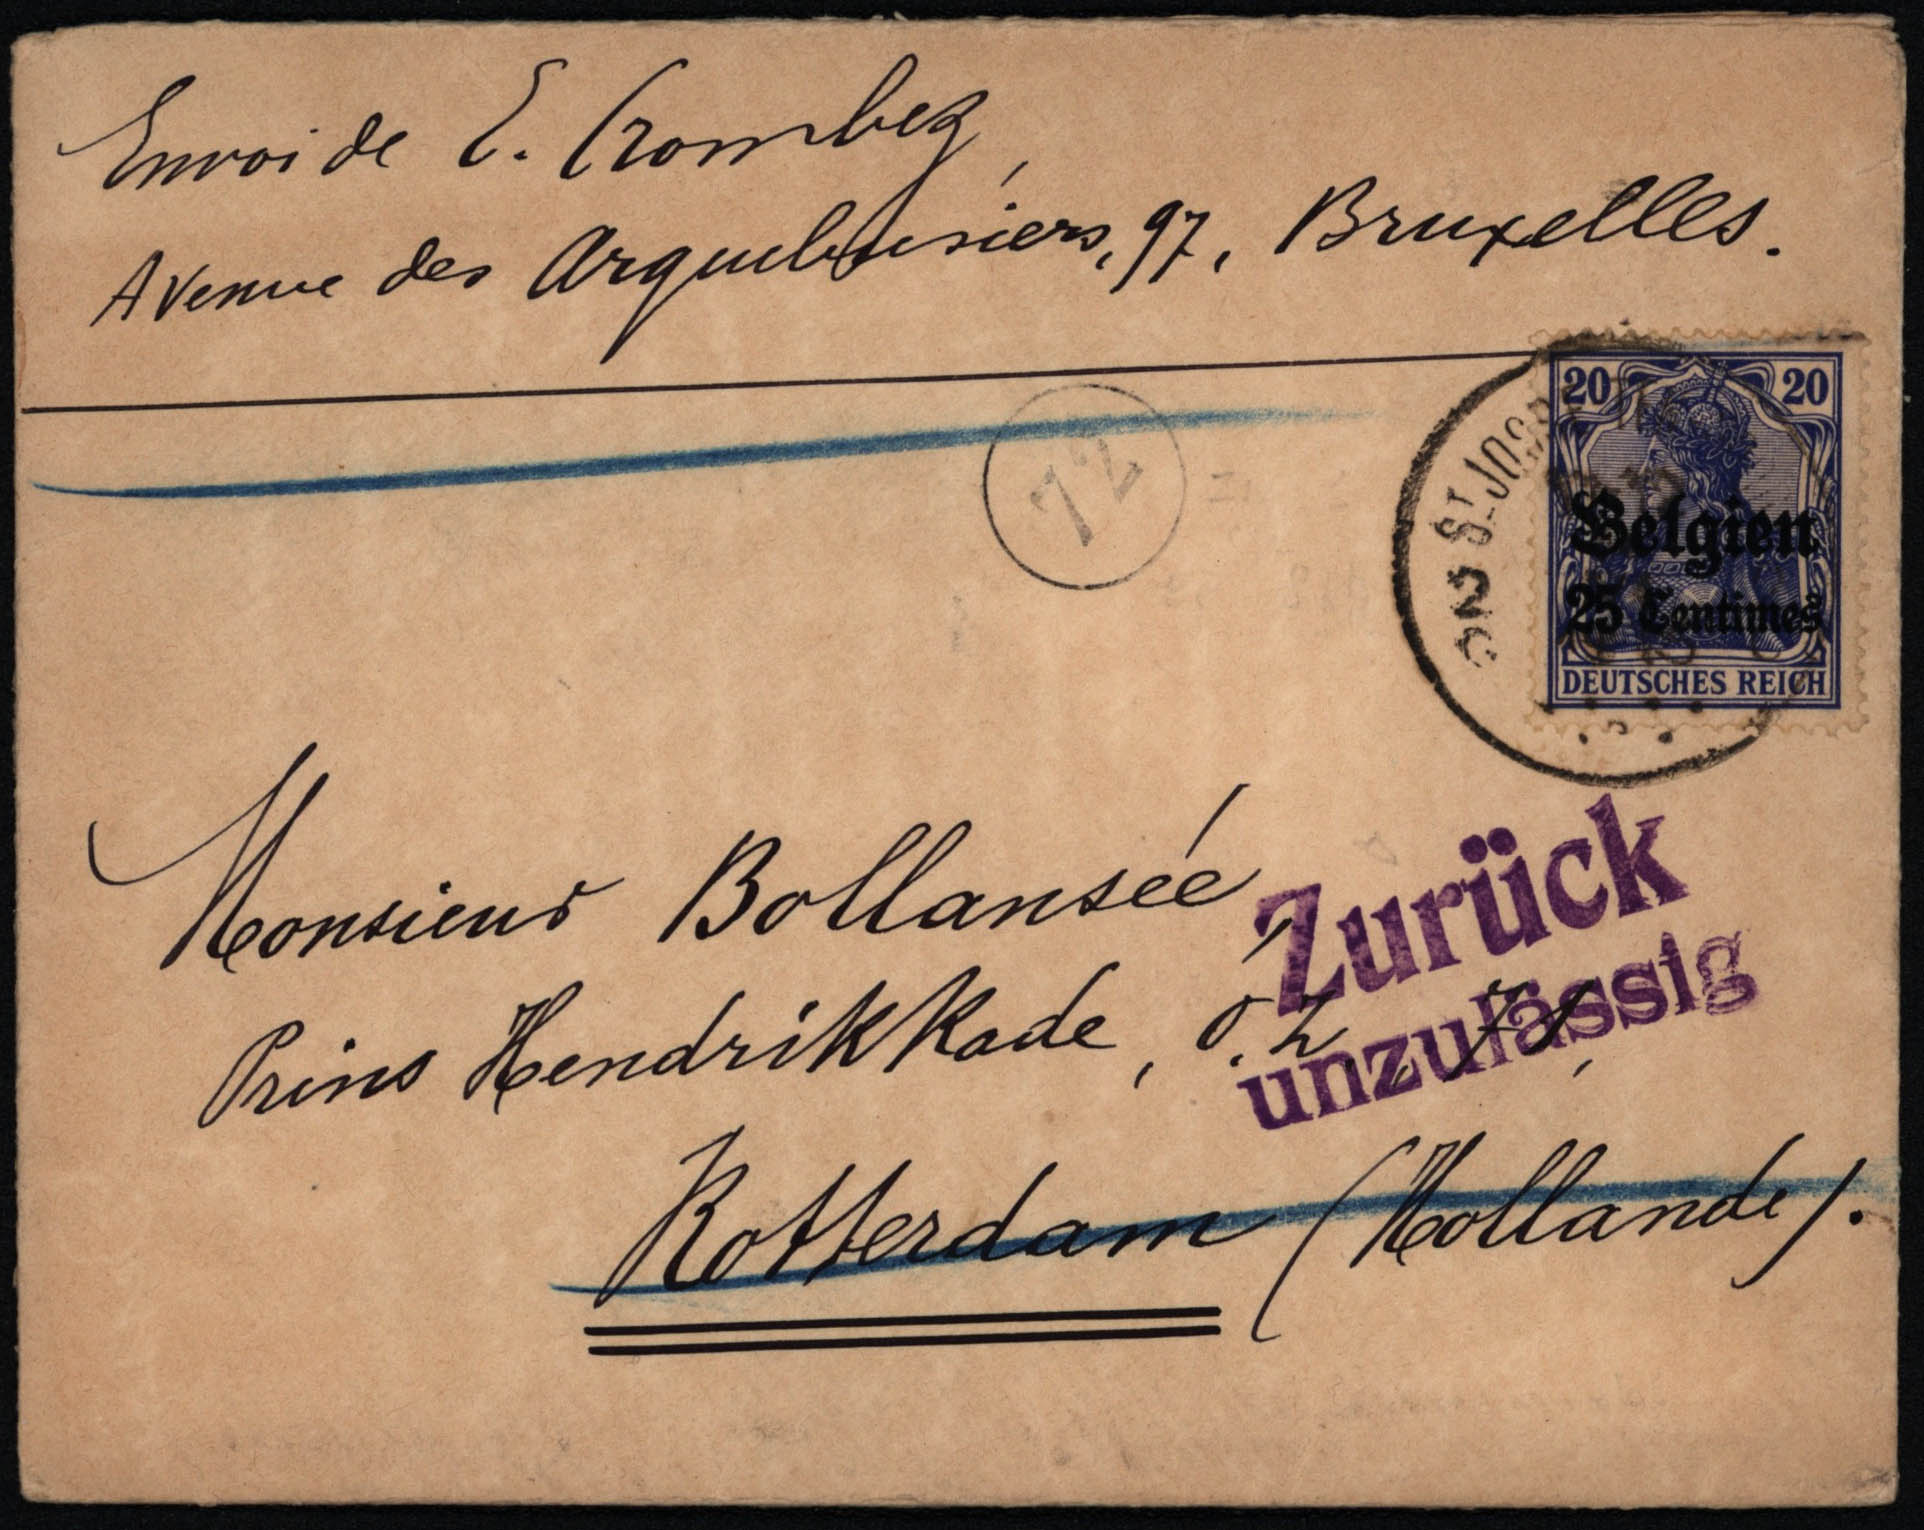 Envoi de E. Crombez,
Avenue des Arquebusiers, 97, Bruxelles.
20 20
ST-JOSSE
72
Belgien
25 Centimes
DEUTSCHES REICH
Monsieur Bollansée,
Zurück
unzulässig
Prins Hendrikkade, o.z., 71,
Rotterdam (Hollande).